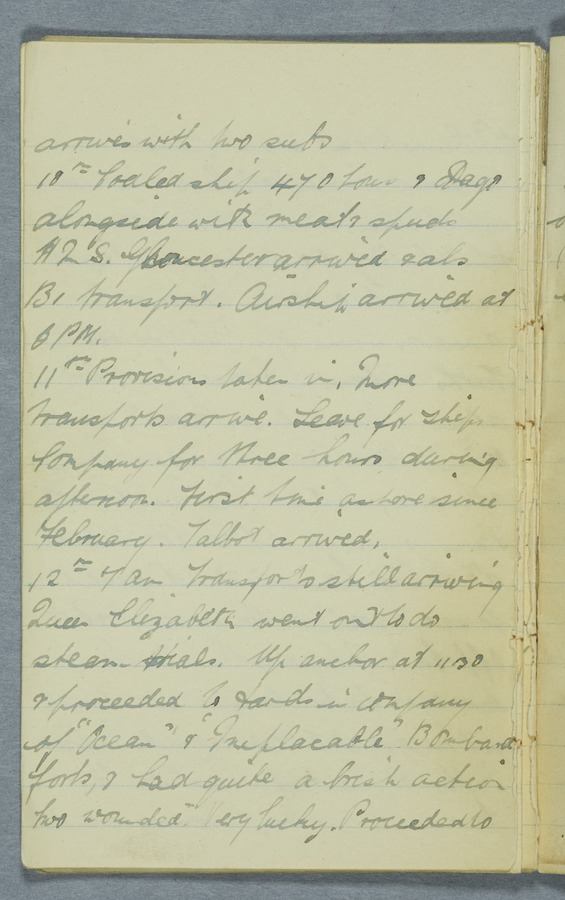 arrives with two subs
10th Coaled ship 470 tons & Dago
alongside with meat & spuds
H.M.S. Gloucester arrived & also
B1 transport. Airship arrived at
6 PM.
11th Provisions taken in. More
transports arrive. Leave for ships
Company for three hours during
afternoon. First time ashore since
February. Talbot arrived.
12th 7 am Transports still arriving
Queen Elizabeth went out to do
steam trials. Up anchor at 1130
& proceeded to in company
of "Ocean" & "Implacable" Bombard
forts, & had quite a brisk action
two wounded. Very lucky. Proceeded to